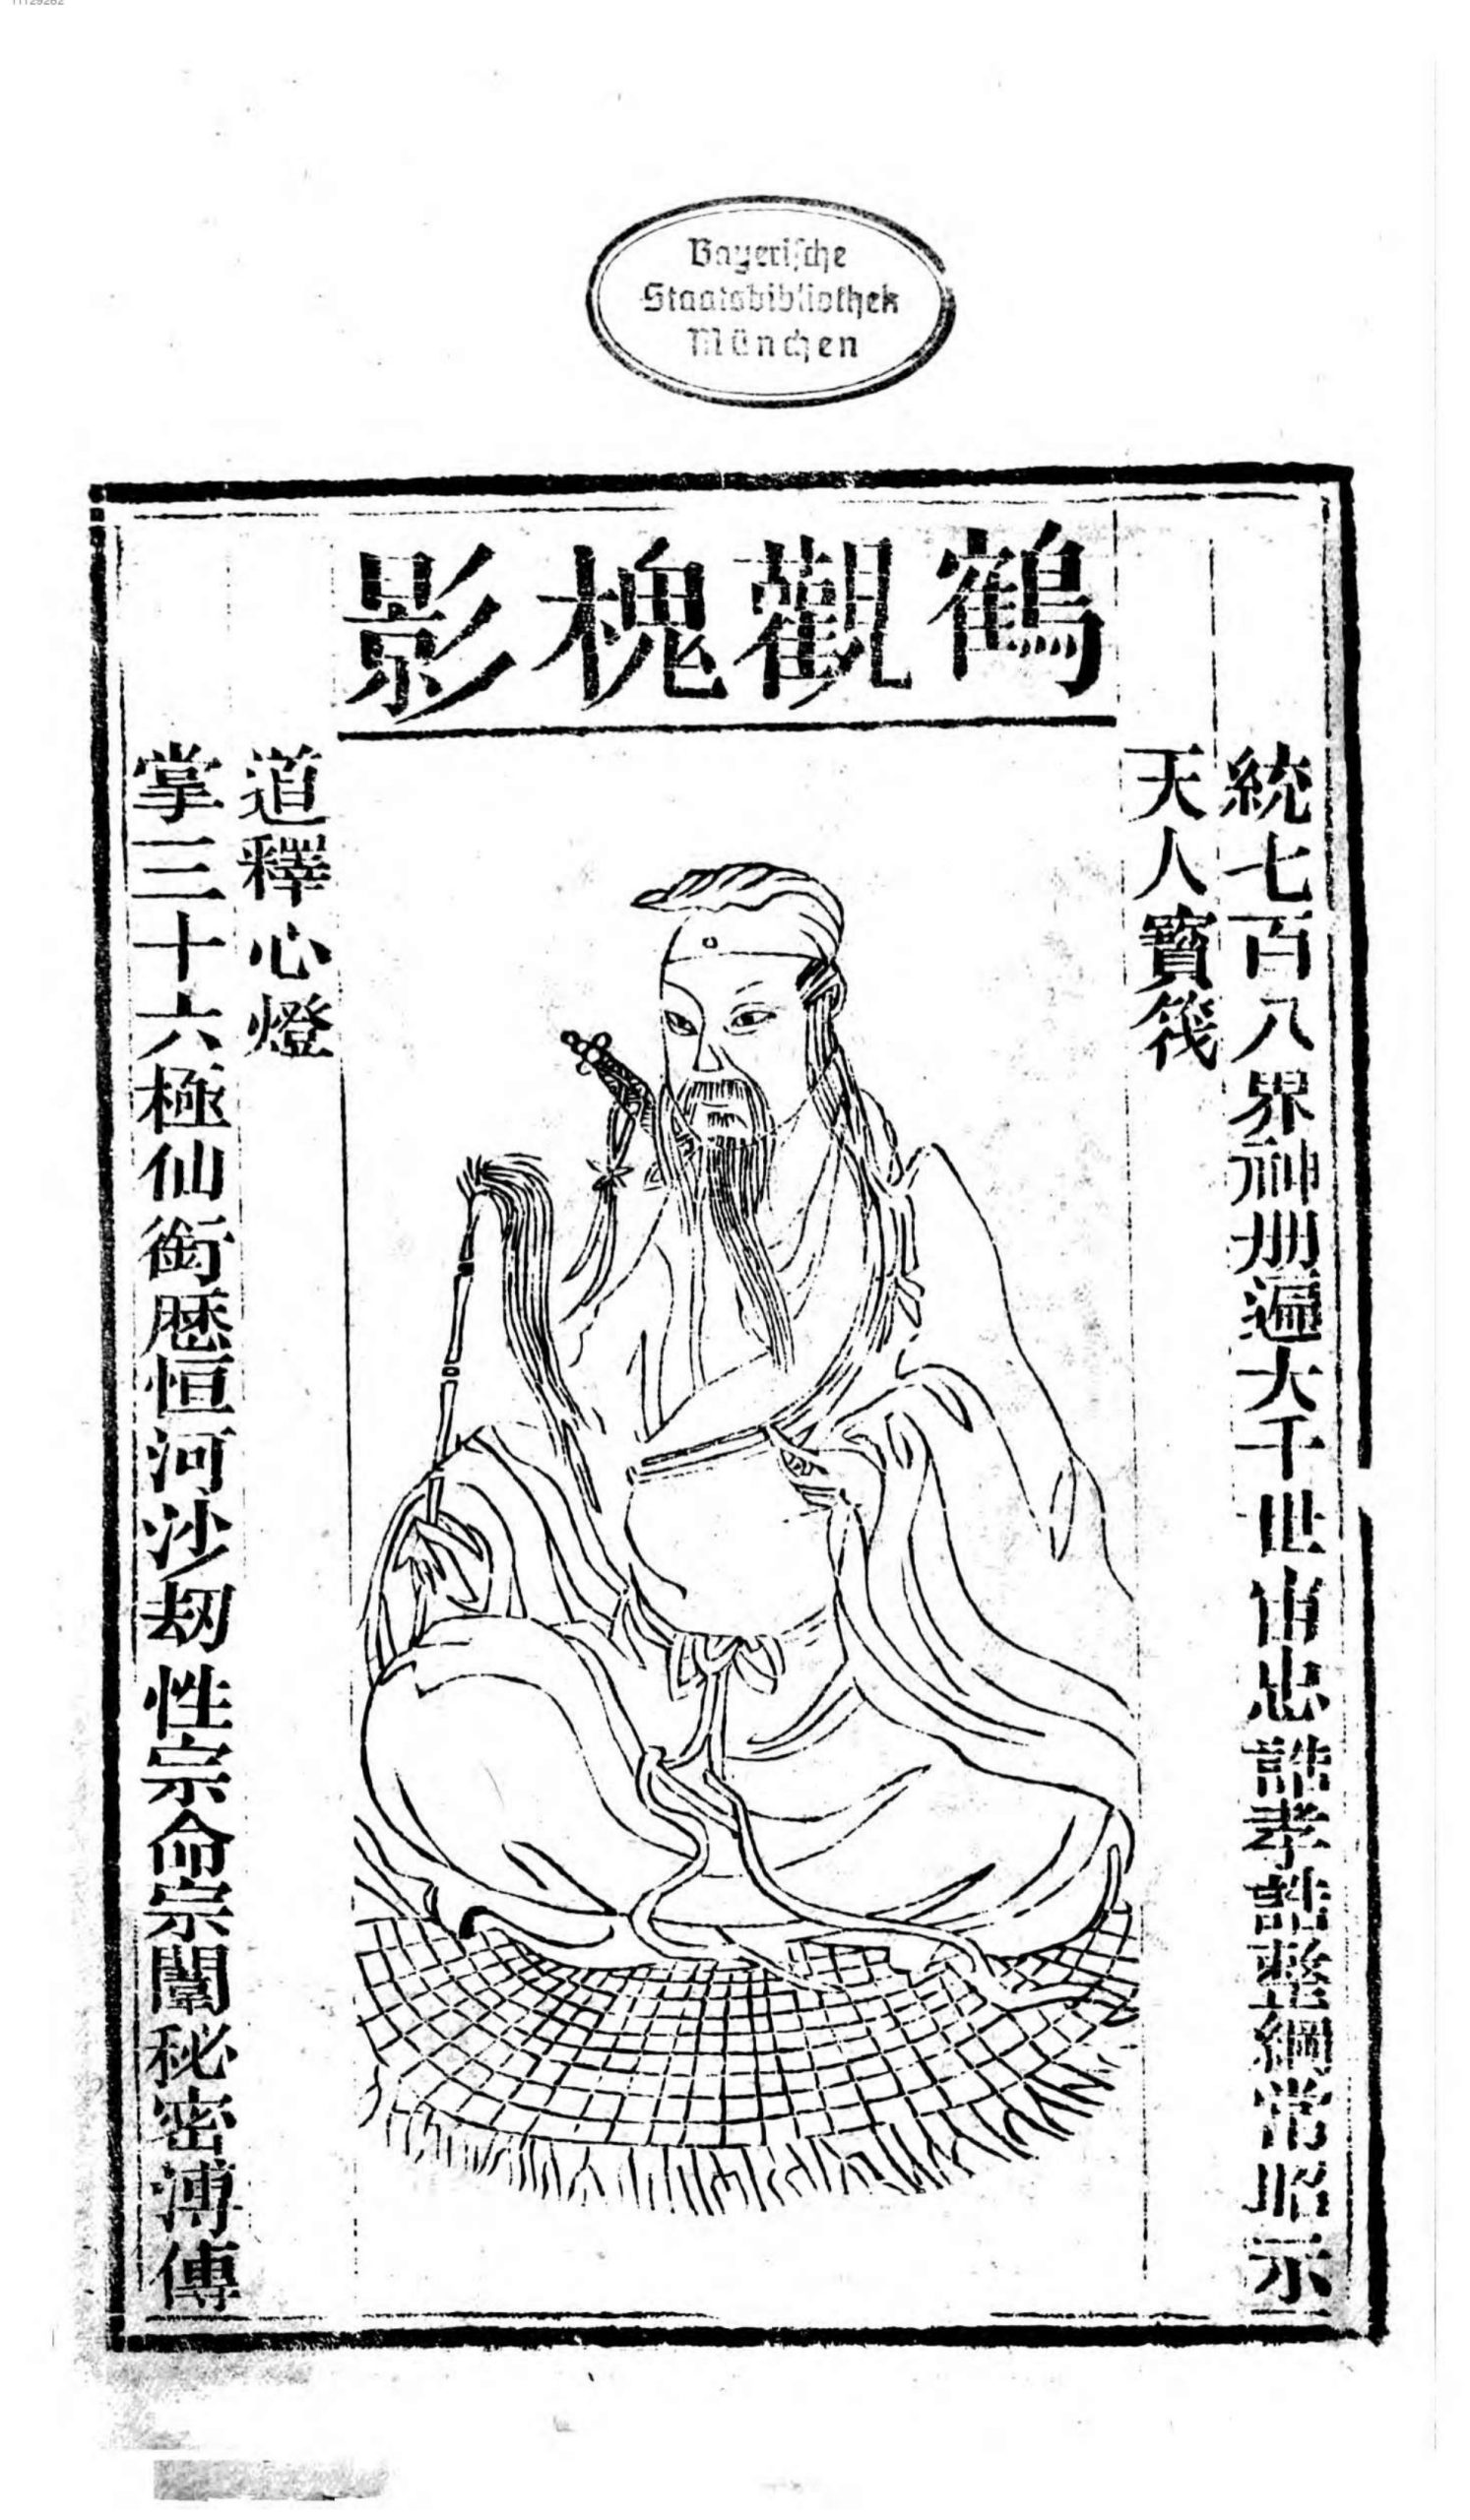 11129282
Bayerische
Staatsbibliothek
München
鶴觀槐影
統七百八界神册遍大千世宙忠誥孝誥整綱常昭示
天人寶筏
道釋心燈
掌三十六極仙銜歷恒河沙刼性宗命宗闡秘密溥傳